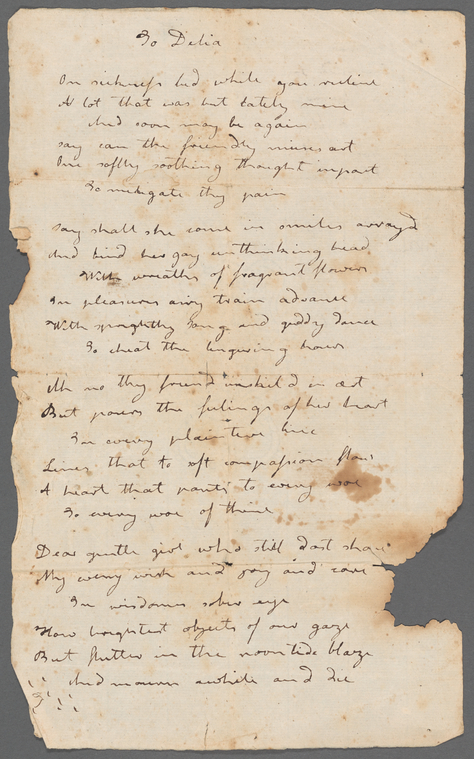 To Delia
On sickness bed while you recline
A lot that was but lately mine
And soon may be again
Say can the friendly muses art
One softly soothing thought impart
To mitigate thy pain
Say shall she come in smiles array'd
And bind her gay unthinking head
With wreaths of fragrant flowers
In pleasures airy train advance
With sprightly song and giddy dance
To cheat the lingering hours
Ah no thy friend unskil'd in art
But pours the feelings of her heart
In every plaintive line
Lines that to soft compassion flow
A heart that pants to every woe
To every woe of thine
Dear gentle girl who still dost share
My every wish and joy and care
In wisdoms sober eye
How brightest objects of our gaze
But flutter in the noontide blaze
And mourn awhile and die